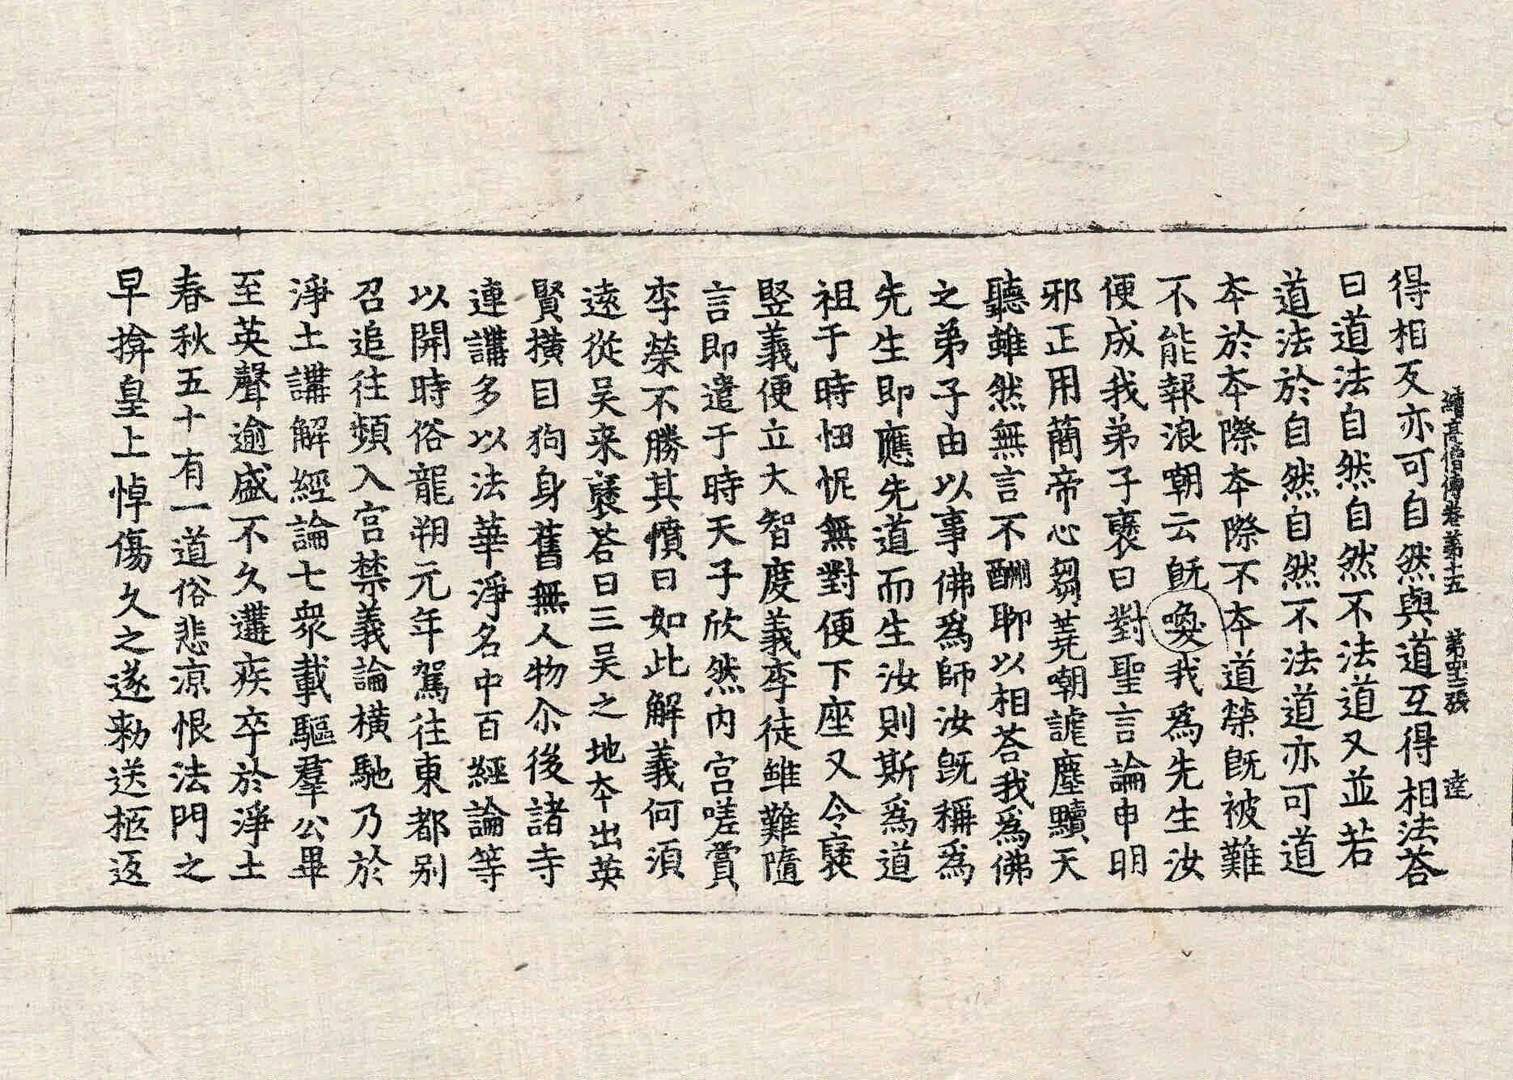 續高僧傳卷第十五 第二張 逵
得相反亦可自然與道互得相法荅
曰道法自然自然不法道又並若
道法於自然自然不法道亦可道
夲於夲際夲際不夲道榮旣被難
不能報浪嘲云旣喚我爲先生汝
便成我弟子襃曰對聖言論申明
邪正用簡帝心芻蕘嘲謔塵黷天
聽雖然無言不酬聊以相荅我爲佛
之弟子由以事佛爲師汝旣稱爲
先生即應先道而生汝則斯爲道
祖于時忸怩無對便下座又令襃
竪義便立大智度義李徒雖難隨
言即遣于時天子欣然內宮嗟賞
李榮不勝其憤曰如此解義何湏
遠從吴來襃荅曰三吴之地夲出英
賢橫目狗身舊無人物尒後諸寺
連講多以法華淨名中百經論等
以開時俗龍朔元年駕往東都别
召追往頻入宮禁義論橫馳乃於
淨土講解經論七衆載驅羣公畢
至英聲逾盛不久遘疾卒於淨土
春秋五十有一道俗悲凉恨法門之
早揜皇上悼傷久之遂勑送柩返